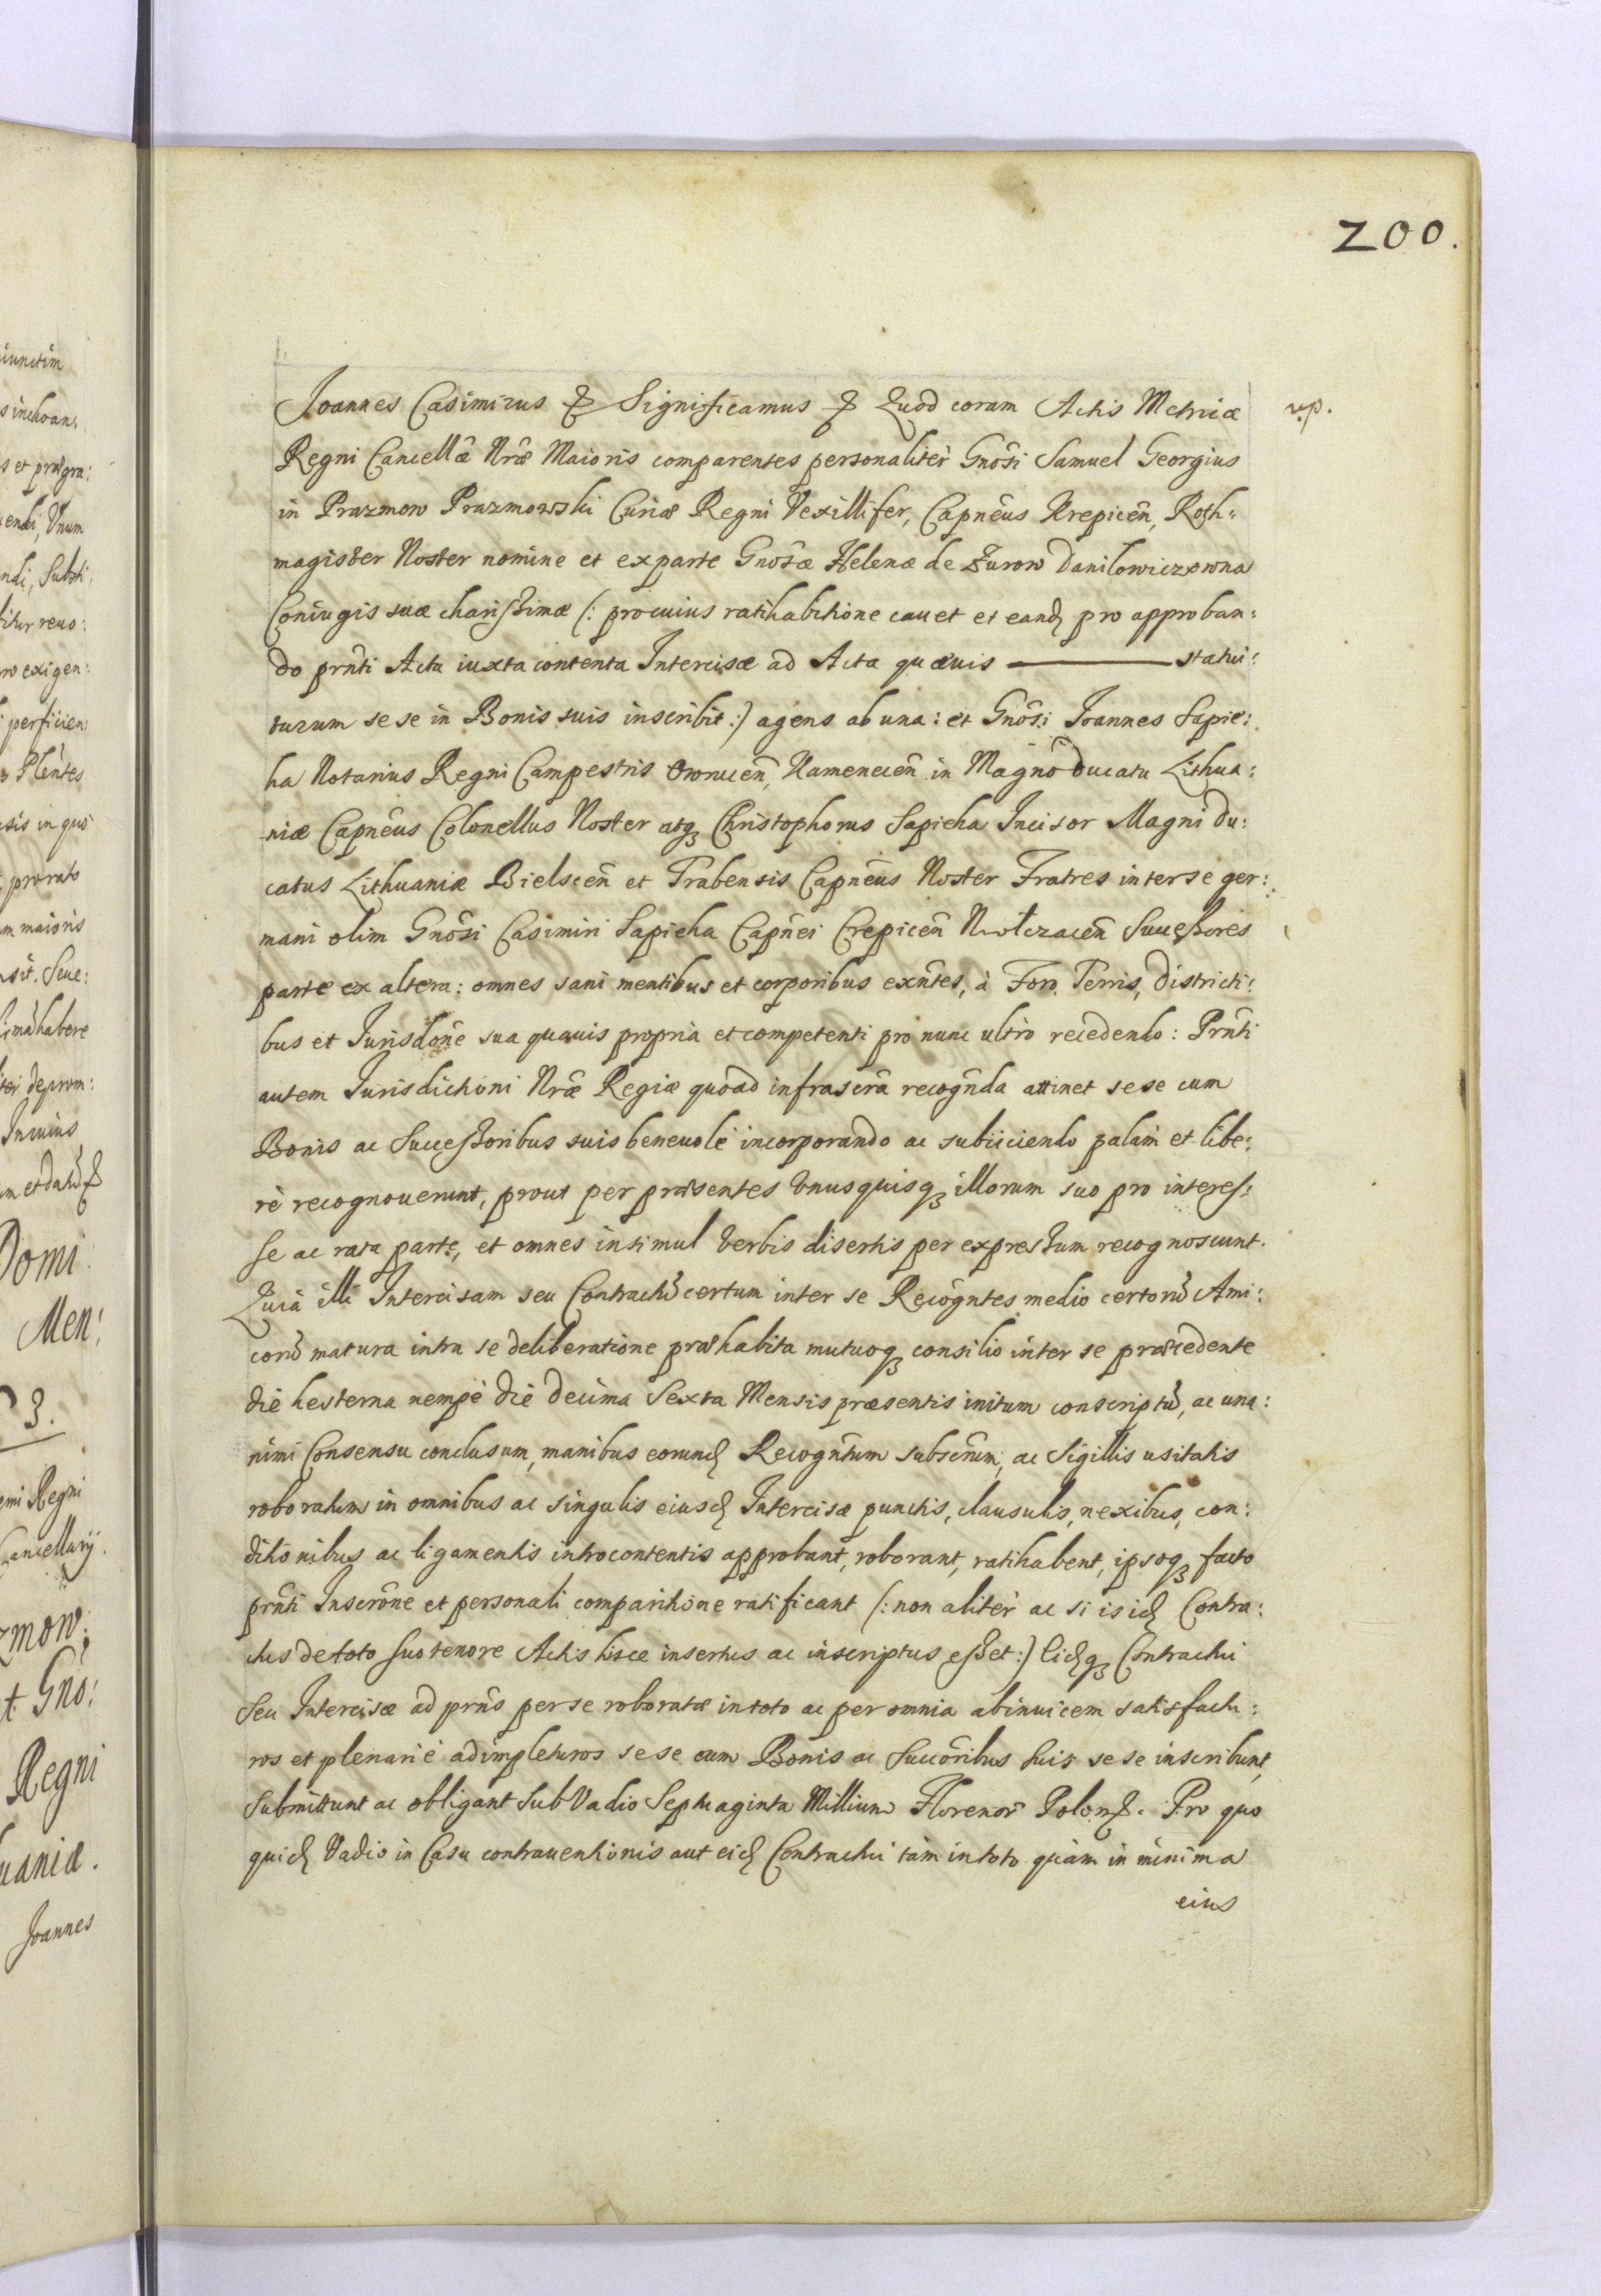 iunctim
s inchoan,
s et prægra:
uendi, Vnum
ndi, Substi,
litur reuo:
ro exigen:
perficien:
Plêntes
sis in quo
, pro rato
m maioris
sit. Seue:
mã habere
ter deprom:
Incuius
m et datũ &
Domi
Men:
3.
emi Regni
Cancellarij.
zmow;
t Gno:
Regni
uaniæ.
Joannes
200.
Joannes Casimirus & Significamus & Quod coram Actis Metricæ
up.
Regni Cancellæ Nræ Maioris comparentes personalitèr Gnôsi Samuel Georgius
in Prazmow Prazmowski Curiæ Regni Vexillifer, Capnêus Krepicên, Roth=
magister Noster nomine et ex parte Gnôsæ Helenæ de Zurow Danilowiczowna
Coniugis suæ charissimæ (: pro cuius ratihabitione cauet et eandꝫ pro approban:
do prñti Actu iuxta contenta Intercisæ ad Acta quæuis ——— statui:
turum sese in Bonis suis inscribit :) agens ab una: et Gnôsi Joannes Sapie:
ha Notarius Regni Campestris Owrucên, Kamenecên in Magno Ducatu Lithua:
niæ Capnêus Colonellus Noster atqꝫ Christophorus Sapieha Incisor Magni Du:
catus Lithuaniæ Bielscên et Trabensis Capnêus Noster Fratres inter se ger:
mani olim Gnôsi Casimiri Sapieha Capñei Crepicên Wołczacên Successores
parte ex altera: omnes sani mentibus et corporibus exñtes, à Foro, Terris, Districti:
bus et Jurisdoñe sua quauis propria et competenti pro nunc ultrò recedendo: Prñti
autem Jurisdictioni Nræ Regiæ quoad infrascrã recogñda attinet sese cum
Bonis ac Successoribus suis beneuolè incorporando ac subiiciendo palàm et libe:
rè recognouerunt, prout per præsentes Vnusquisqꝫ illorum suo pro interes:
se ac rata parte, et omnes insimul Verbis disertis per expressum recognoscunt.
Quià illi Intercisam seu Contractũ certum inter se Recogñtes medio certorũ Ami:
corũ matura intra se deliberatione præhabita mutuoqꝫ consilio inter se præcedente
die hesterna nempè die decima Sexta Mensis præsentis initum conscriptũ, ac una:
nimi Consensu conclusum, manibus eorundꝫ Recogñtum subscrûm, ac Sigillis usitatis
roboratum in omnibus ac singulis eiusdꝫ Intercisæ punctis, clausulis, nexibus, con:
ditionibus ac ligamentis introcontentis approbant, roborant, ratihabent, ipsoqꝫ facto
prñti Inscrône et personali comparitione ratificant (: non alitèr ac si isidꝫ Contra:
ctus de toto suo tenore Actis hisce insertus ac inscriptus esset :) Eidꝫqꝫ Contractui
Seu Intercisæ ad prñs per se roboratæ in toto ac per omnia abinuicem satisfactu:
ros et plenariè adimpleturos sese cum Bonis ac Succôribus suis sese inscribunt,
submittunt ac obligant sub Vadio Septuaginta Millium Florenor Polon &. Pro quo
quidꝫ Vadio in Casu contrauentionis aut eidꝫ Contractui tàm in toto quàm in minima
eius